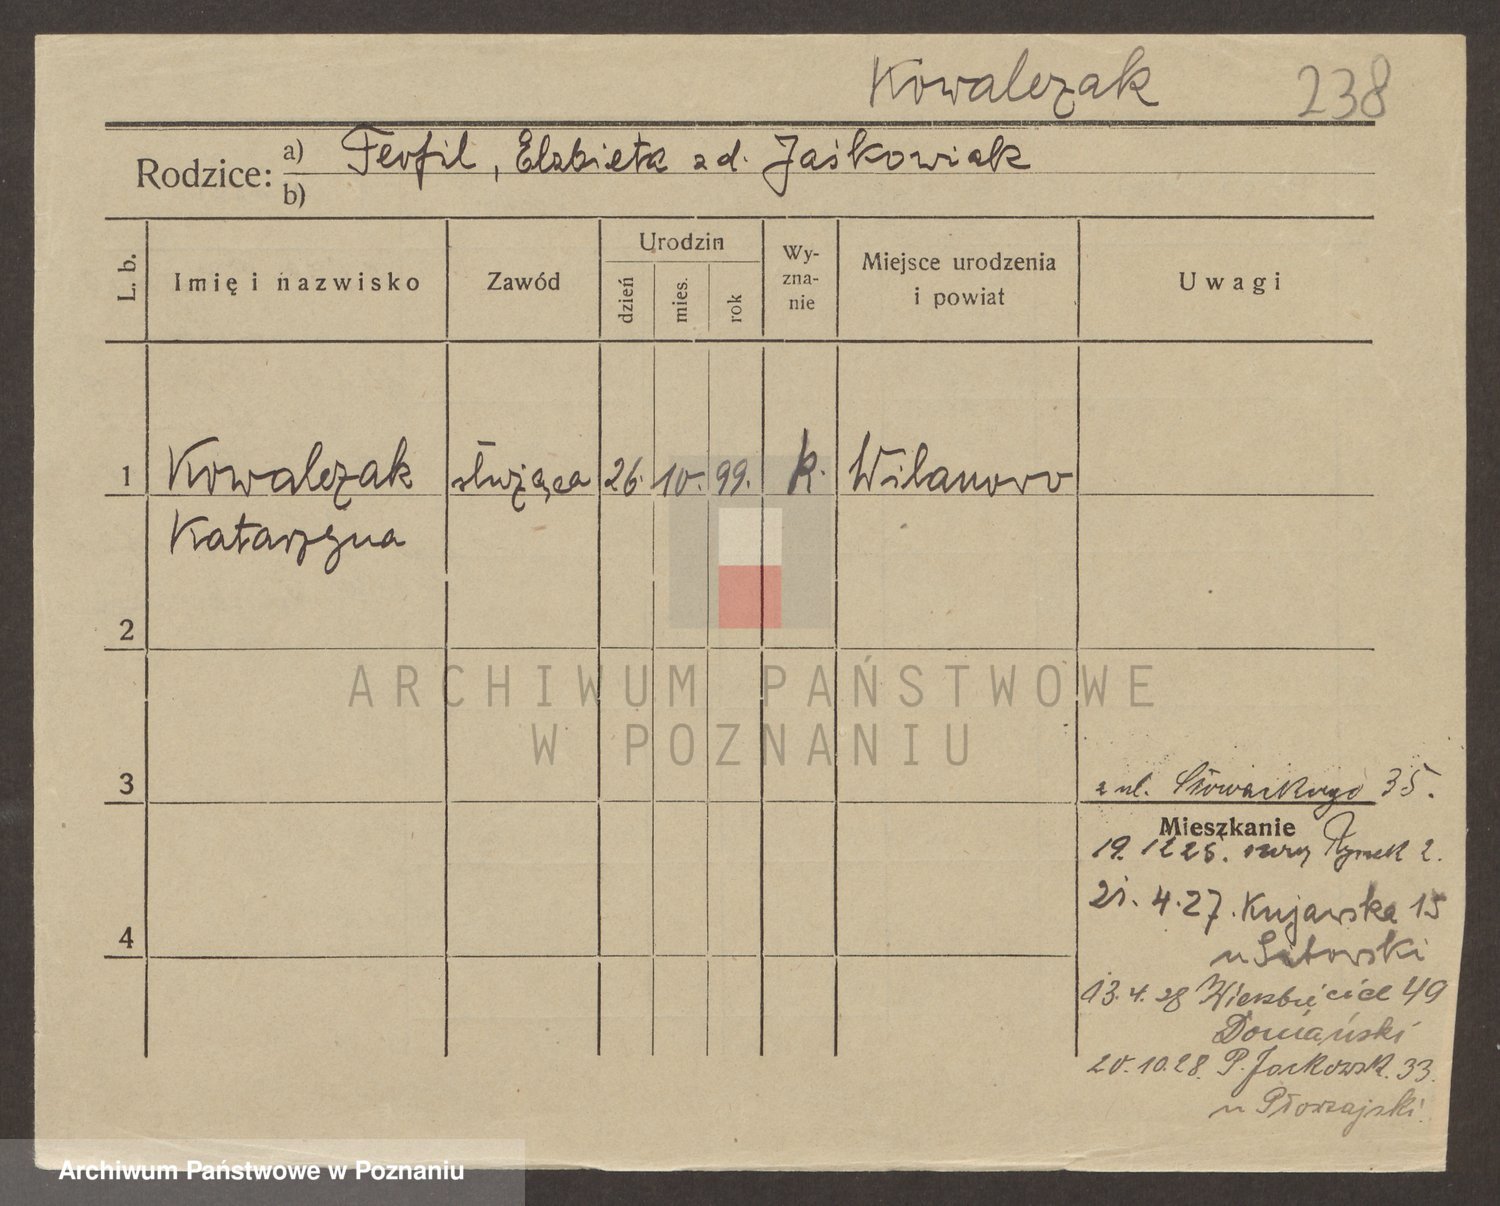 Kowalczak 238
Rodzice: a) Teofil, Elzbieta z d. Jaśkowiak
b)
L. b. Imię i nazwisko Zawód Urodzin dzień mies. rok Wyznanie Miejsce urodzenia i powiat Uwagi
1 Kowalczak służąca 26. 10. 99. k. Wilanowo
Katarzyna
2
ARCHIWUM PAŃSTWOWE
W POZNANIU
3
z ul. Słowackiego 35.
Mieszkanie
19. 12 25. Rynek 2.
21. 4. 27. Kujawska 15
u
13. 4. 28 Wierzbięcice 49
4
Domański
20. 10. 28. P. Jackowsk. 33.
u
Archiwum Państwowe w Poznaniu